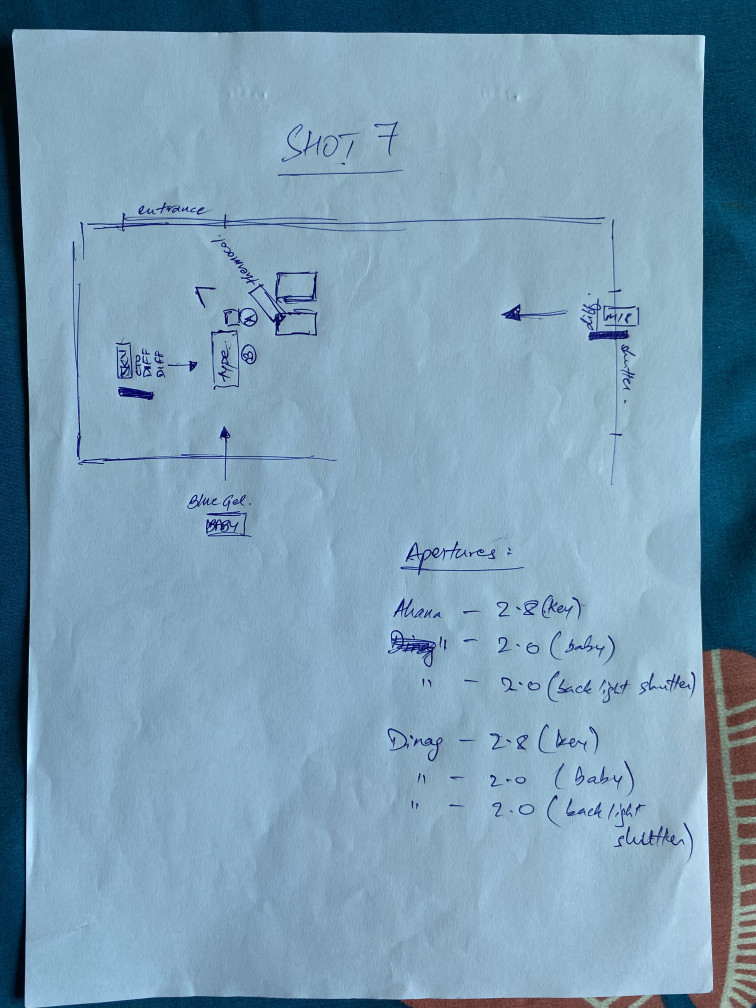 SHOT 7
entrance
thermocol.
A
B
type
SKY
CTO
DIFF
DIFF
diff.
M18
shutter.
Blue Gel.
BABY
Apertures:
Ahana - 2.8 (key)
" - 2.0 (baby)
" - 2.0 (back light shutter)
Dinag - 2.8 (key)
" - 2.0 (baby)
" - 2.0 (back light
shuttter)